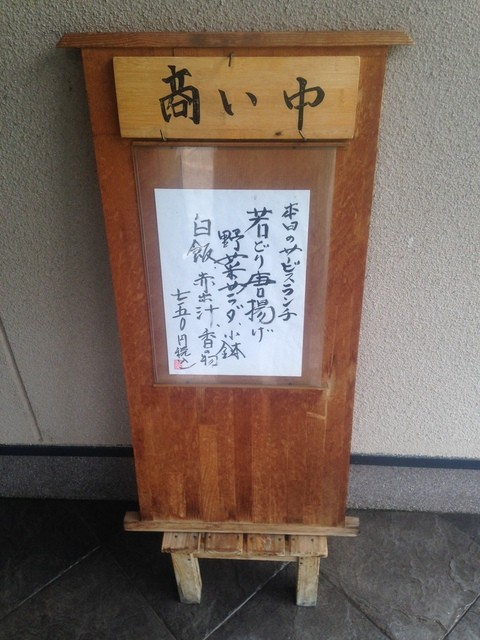 商い中
本日のサービスランチ
若どり唐揚げ
野菜サラダ、小鉢
白飯、赤出汁、香の物
七五〇円税込